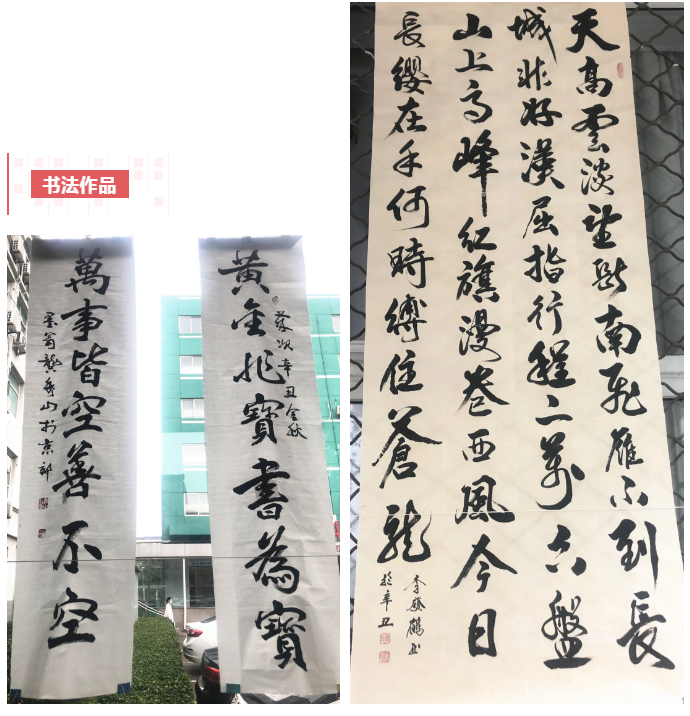 书法作品
黄金非寶書為寶
歲次辛丑金秋
萬事皆空善不空
天高雲淡望斷南飛雁不到長
城非好漢屈指行程二萬六盤
山上高峰紅旗漫卷西風今日
長纓在手何時縛住蒼龍
於辛丑